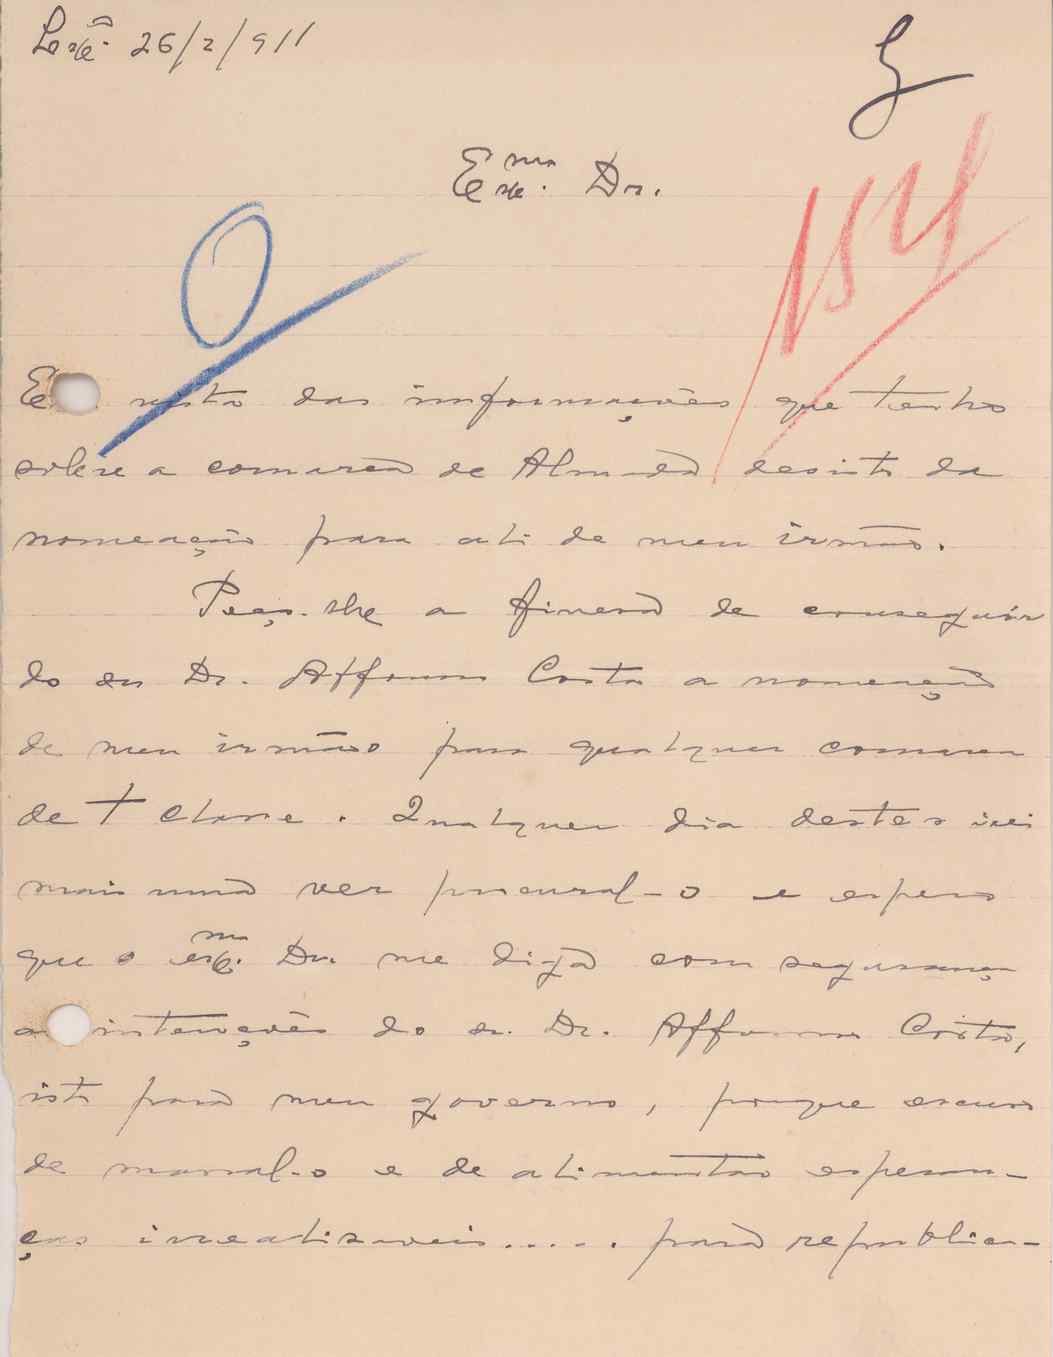 Lxª. 26/2/911
Exmo. Dr.
154
0
E vista das informações que tenho
sobre a comarca de Almada desisto da
nomeação para ali de meu irmão.
Peço-lhe a fineza de conseguir
do sr. Dr. Affonso Costa a nomeação
de meu irmão para qualquer comarca
de 1ª classe. Qualquer dia destes irei
mais uma vez procural-o e espero
que o exmo. Dr. me diga com segurança
as intenções do sr. Dr. Affonso Costa,
isto para meu governo, porque escuso
de massal-o e de alimentar esperan-
ças irrealisaveis..... para republica-